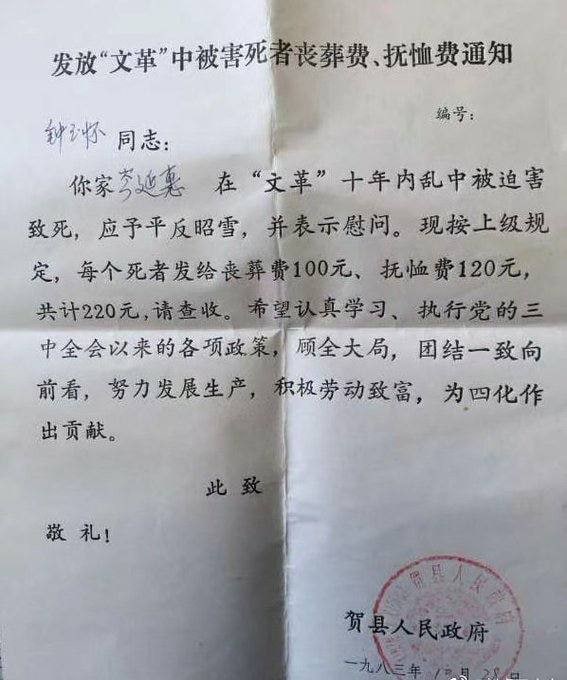 发放“文革”中被害死者丧葬费、抚恤费通知
编号：
钟玉怀 同志：
你家岑延惠 在“文革”十年内乱中被迫害
致死，应予平反昭雪，并表示慰问。现按上级规
定，每个死者发给丧葬费100元、抚恤费120元，
共计220元，请查收。希望认真学习、执行党的三
中全会以来的各项政策，顾全大局，团结一致向
前看，努力发展生产，积极劳动致富，为四化作
出贡献。
此致
敬礼！
贺县人民政府
贺县人民政府
一九八三年 10月 28日